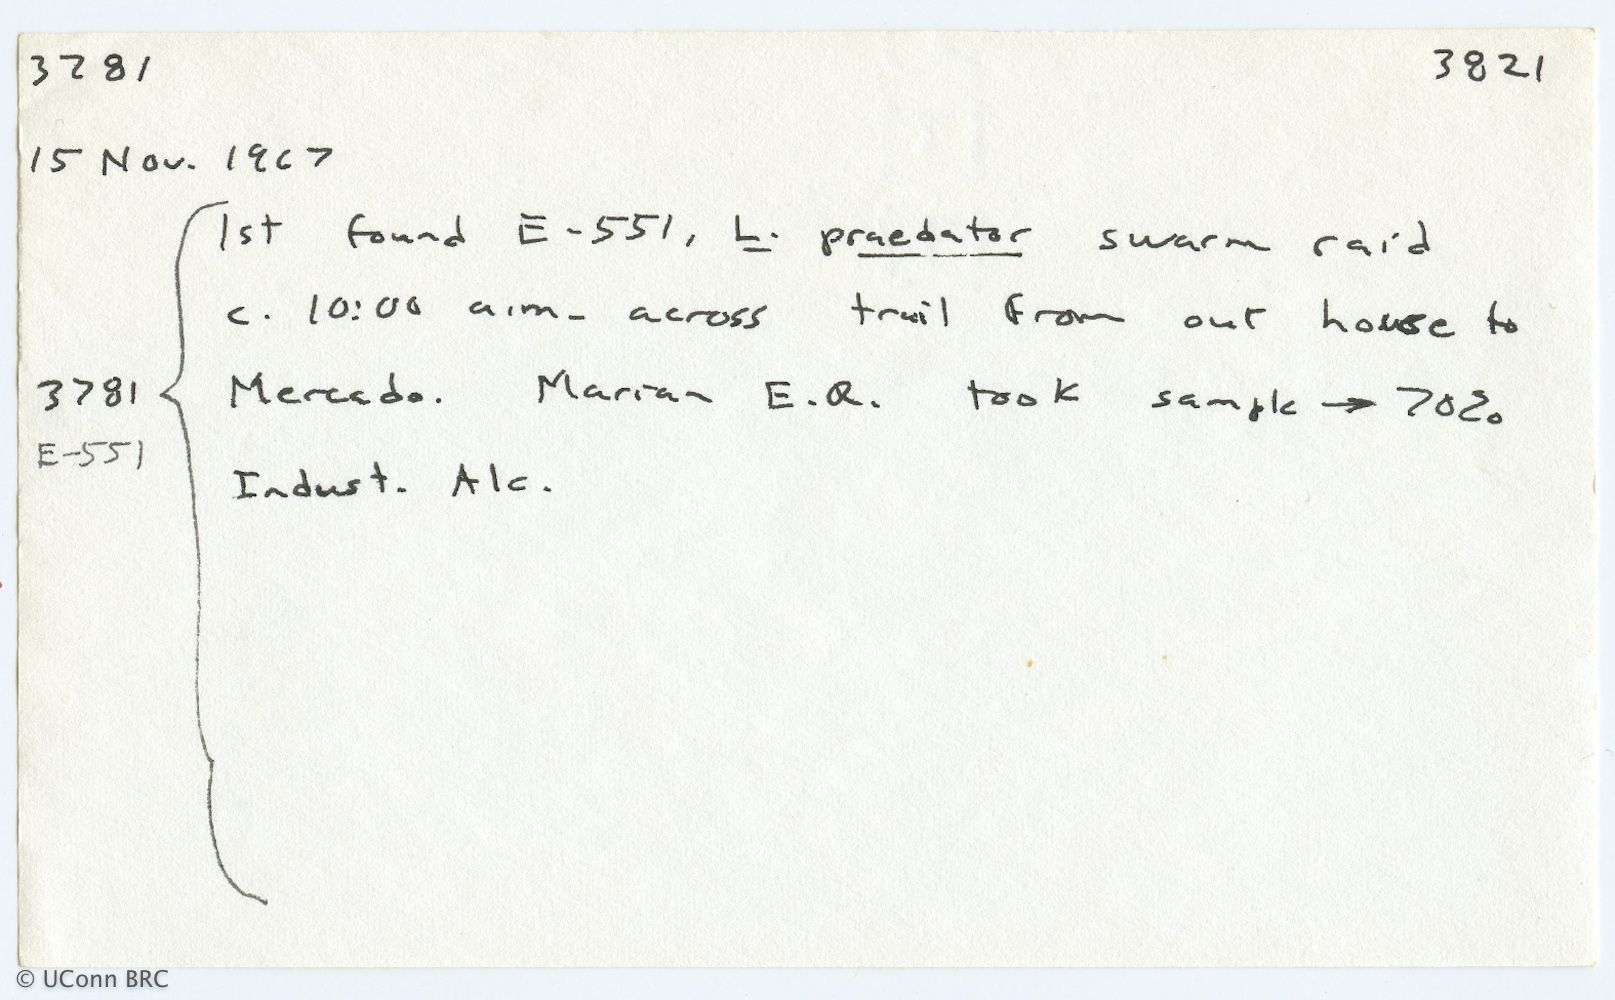 3781 3821
15 Nov. 1967
1st found E-551, L. praedator swarm raid
c. 10:00 a.m. across trail from out house to
3781 Mercado. Marian E.R. took sample → 70%
E-551
Indust. Alc.
© UConn BRC